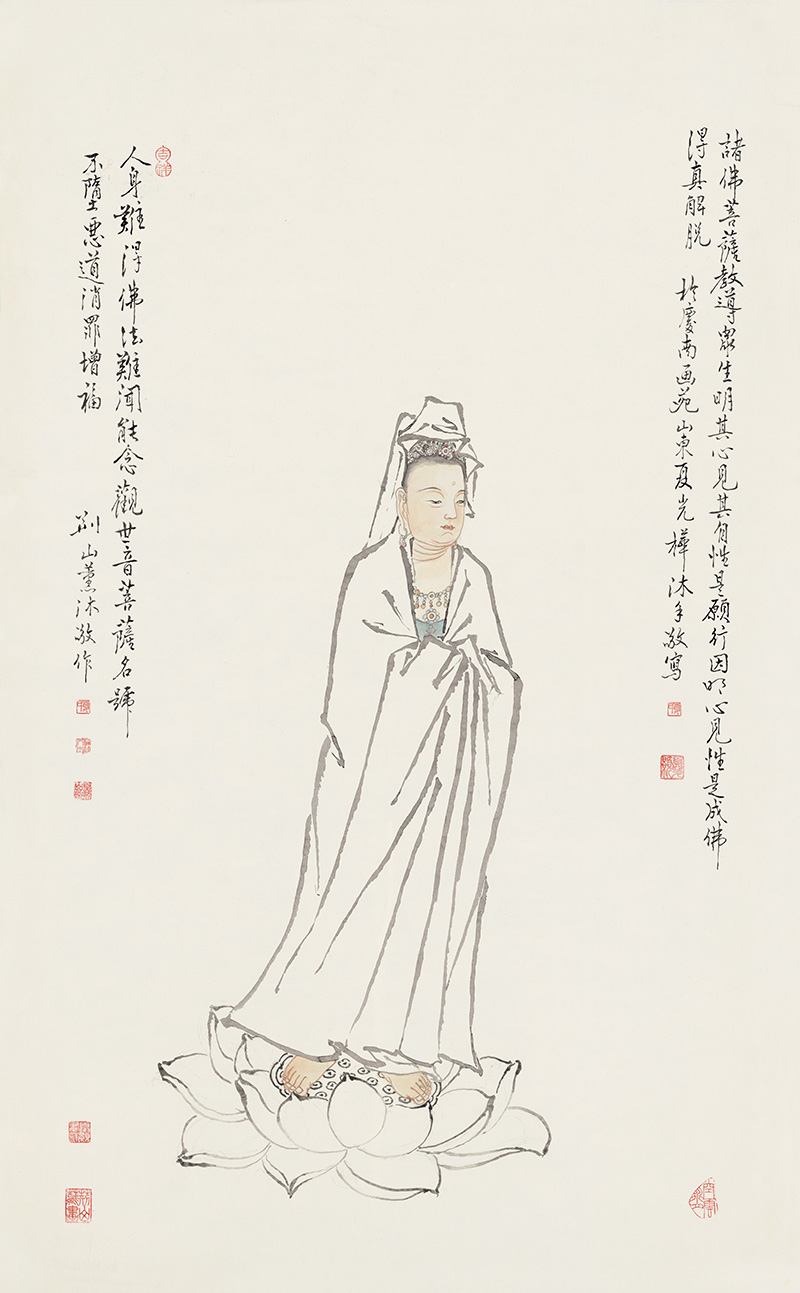 諸佛菩薩教導眾生明其心見其自性是願行因明心見性是成佛
得真解脫
於慶南画苑山東夏光樺沐手敬寫
人身難得佛法難聞能念觀世音菩薩名號
不墮惡道消罪增福
荆山薰沐敬作